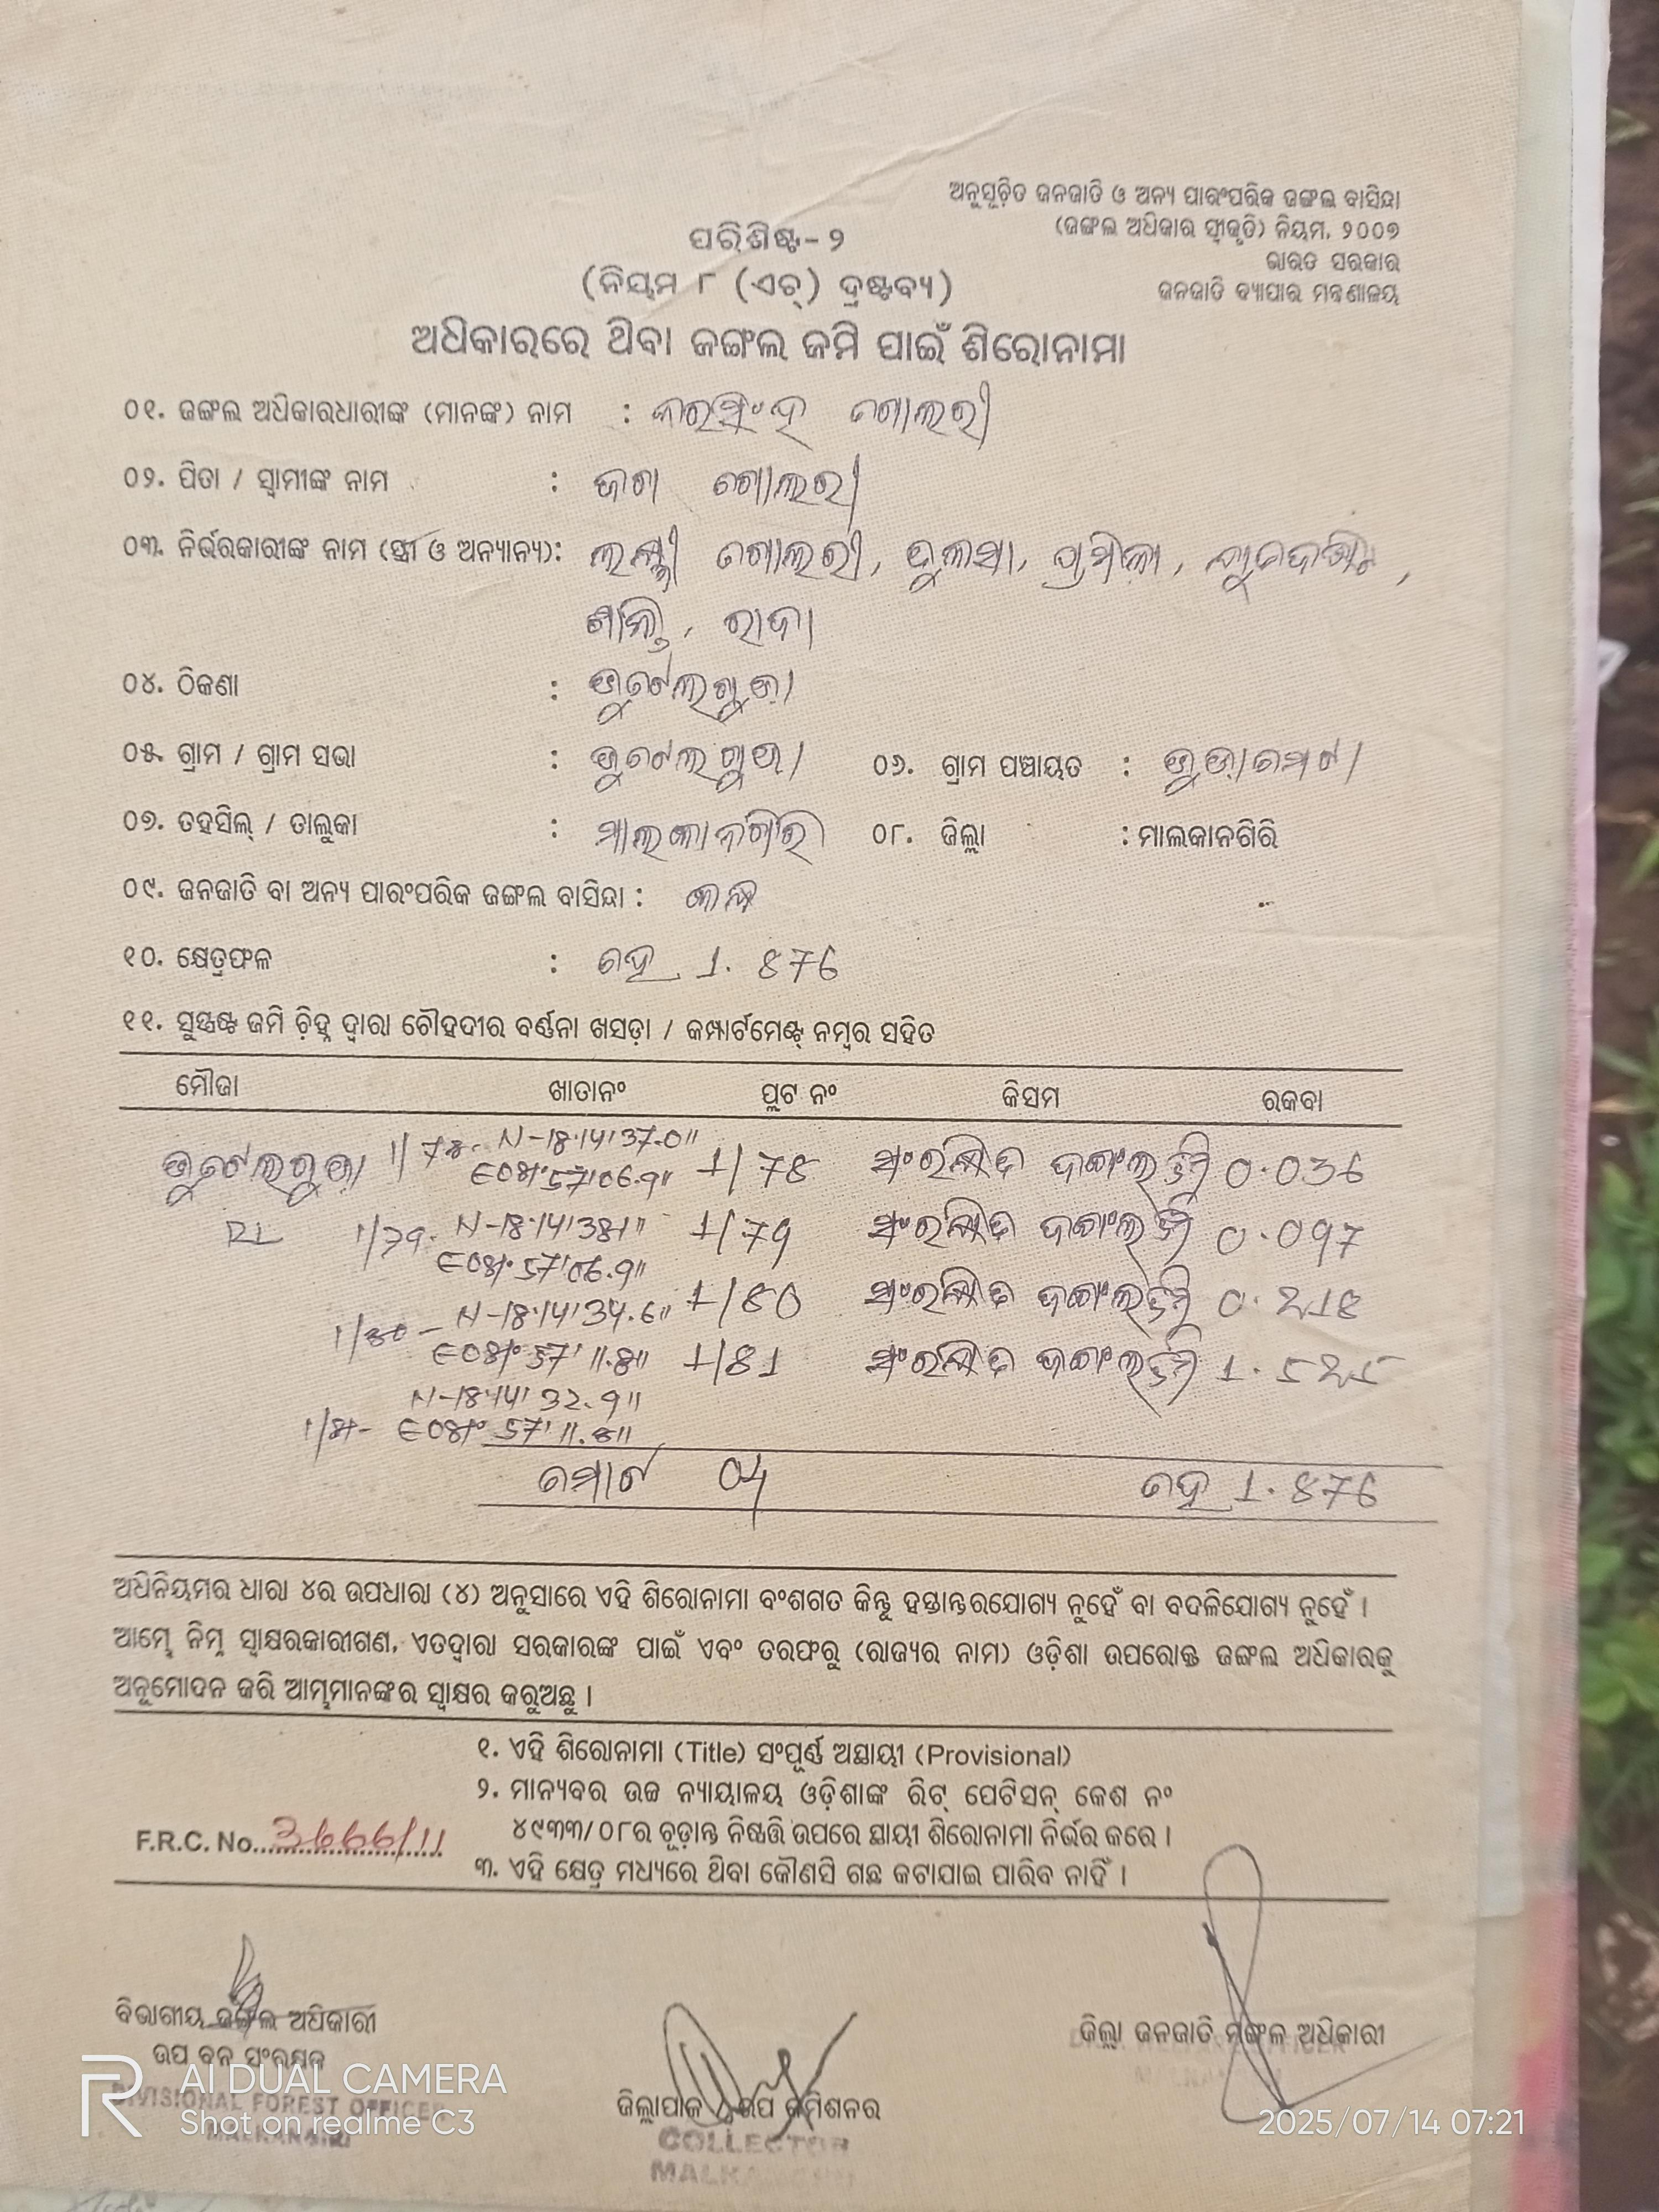 ଅନୁସୂଚିତ ଜନଜାତି ଓ ଅନ୍ୟ ପାରଂପରିକ ଜଙ୍ଗଲ ବାସିନ୍ଦା
(ଜଙ୍ଗଲ ଅଧିକାର ସ୍ୱୀକୃତି) ନିୟମ, ୨୦୦୭
ଭାରତ ସରକାର
ଜନଜାତି ବ୍ୟାପାର ମନ୍ତ୍ରଣାଳୟ
ପରିଶିଷ୍ଟ-୨
(ନିୟମ ୮ (ଏଚ୍) ଦ୍ରଷ୍ଟବ୍ୟ)
ଅଧିକାରରେ ଥିବା ଜଙ୍ଗଲ ଜମି ପାଇଁ ଶିରୋନାମା
୦୧. ଜଙ୍ଗଲ ଅଧିକାରଧାରୀଙ୍କ (ମାନଙ୍କ) ନାମ : ଗୋଲରୀ
୦୨. ପିତା / ସ୍ୱାମୀଙ୍କ ନାମ : ଜଗା ଗୋଲରୀ
୦୩. ନିର୍ଭରକାରୀଙ୍କ ନାମ (ସ୍ତ୍ରୀ ଓ ଅନ୍ୟାନ୍ୟ): ଲକ୍ଷ୍ମୀ ଗୋଲରୀ, ପ୍ରମିଳା,
ଶାନ୍ତି, ରାଜା
୦୪. ଠିକଣା :
୦୫. ଗ୍ରାମ / ଗ୍ରାମ ସଭା : ୦୬. ଗ୍ରାମ ପଞ୍ଚାୟତ :
୦୭. ତହସିଲ୍ / ତାଲୁକା : ମାଲକାନଗିରି ୦୮. ଜିଲ୍ଲା : ମାଲକାନଗିରି
୦୯. ଜନଜାତି ବା ଅନ୍ୟ ପାରଂପରିକ ଜଙ୍ଗଲ ବାସିନ୍ଦା : କନ୍ଧ
୧୦. କ୍ଷେତ୍ରଫଳ : ହେ 1.876
୧୧. ସୁସ୍ପଷ୍ଟ ଜମି ଚିହ୍ନ ଦ୍ୱାରା ଚୌହଦୀର ବର୍ଣ୍ଣନା ଖସଡ଼ା / କମ୍ପାର୍ଟମେଣ୍ଟ୍ ନମ୍ବର ସହିତ
ମୌଜା ଖାତାନଂ ପ୍ଲଟ ନଂ କିସମ ରକବା
1/78- N-18°14'37.0" 1/78 ସଂରକ୍ଷିତ ଜଙ୍ଗଲ ଜମି 0.036
E081°57'06.9"
1/79- N-18°14'38.1" 1/79 ସଂରକ୍ଷିତ ଜଙ୍ଗଲ ଜମି 0.097
E081°57'06.9"
1/80- N-18°14'34.6" 1/80 ସଂରକ୍ଷିତ ଜଙ୍ଗଲ ଜମି 0.218
E081°57'11.8" 1/81 ସଂରକ୍ଷିତ ଜଙ୍ଗଲ ଜମି 1.525
N-18°14'32.9"
1/81- E081°57'11.8"
ମୋଟ 04 ହେ 1.876
ଅଧିନିୟମର ଧାରା ୪ର ଉପଧାରା (୪) ଅନୁସାରେ ଏହି ଶିରୋନାମା ବଂଶଗତ କିନ୍ତୁ ହସ୍ତାନ୍ତରଯୋଗ୍ୟ ନୁହେଁ ବା ବଦଳିଯୋଗ୍ୟ ନୁହେଁ ।
ଆମ୍ଭେ ନିମ୍ନ ସ୍ୱାକ୍ଷରକାରୀଗଣ, ଏତଦ୍ୱାରା ସରକାରଙ୍କ ପାଇଁ ଏବଂ ତରଫରୁ (ରାଜ୍ୟର ନାମ) ଓଡ଼ିଶା ଉପରୋକ୍ତ ଜଙ୍ଗଲ ଅଧିକାରକୁ
ଅନୁମୋଦନ କରି ଆମ୍ଭମାନଙ୍କର ସ୍ୱାକ୍ଷର କରୁଅଛୁ ।
୧. ଏହି ଶିରୋନାମା (Title) ସଂପୂର୍ଣ୍ଣ ଅସ୍ଥାୟୀ (Provisional)
୨. ମାନ୍ୟବର ଉଚ୍ଚ ନ୍ୟାୟାଳୟ ଓଡ଼ିଶାଙ୍କ ରିଟ୍ ପେଟିସନ୍ କେଶ ନଂ
୪୯୩୩/୦୮ର ଚୂଡ଼ାନ୍ତ ନିଷ୍ପତ୍ତି ଉପରେ ସ୍ଥାୟୀ ଶିରୋନାମା ନିର୍ଭର କରେ ।
F.R.C. No. 3666/11
୩. ଏହି କ୍ଷେତ୍ର ମଧ୍ୟରେ ଥିବା କୌଣସି ଗଛ କଟାଯାଇ ପାରିବ ନାହିଁ ।
ବିଭାଗୀୟ ଜଙ୍ଗଲ ଅଧିକାରୀ
ଉପ ବନ ସଂରକ୍ଷକ
DIVISIONAL FOREST OFFICER
ଜିଲ୍ଲାପାଳ / ଉପ କମିଶନର
COLLECTOR
ଜିଲ୍ଲା ଜନଜାତି ମଙ୍ଗଳ ଅଧିକାରୀ
AI DUAL CAMERA
Shot on realme C3
2025/07/14 07:21